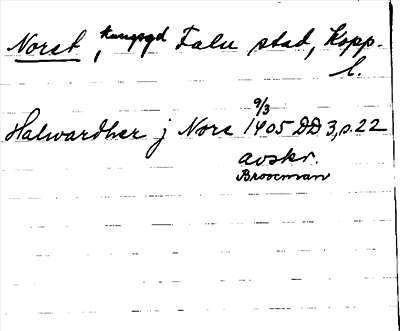 Norst, kungsgd Falu stad, Kopp.
l.
9/3
Halwardher j Nors 1405 DD 3, s. 22
avskr.
Broocman